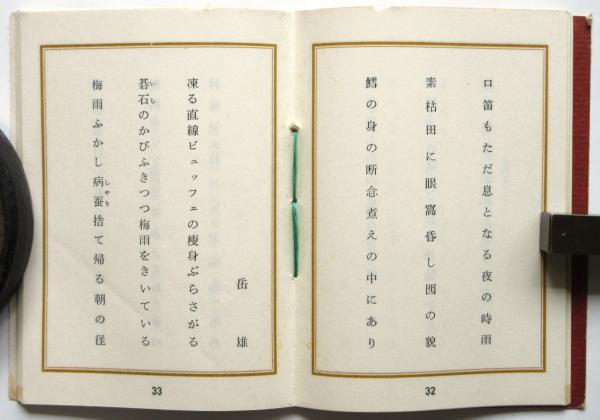 口笛もただ息となる夜の時雨
素枯田に眼窩昏し囮の貌
鱈の身の断念煮えの中にあり
32
岳雄
凍る直線ビュッフェの痩身ぶらさがる
いし
碁石のかびふきつつ梅雨をきいている
しやり
梅雨ふかし病蚕捨て帰る朝の径
33